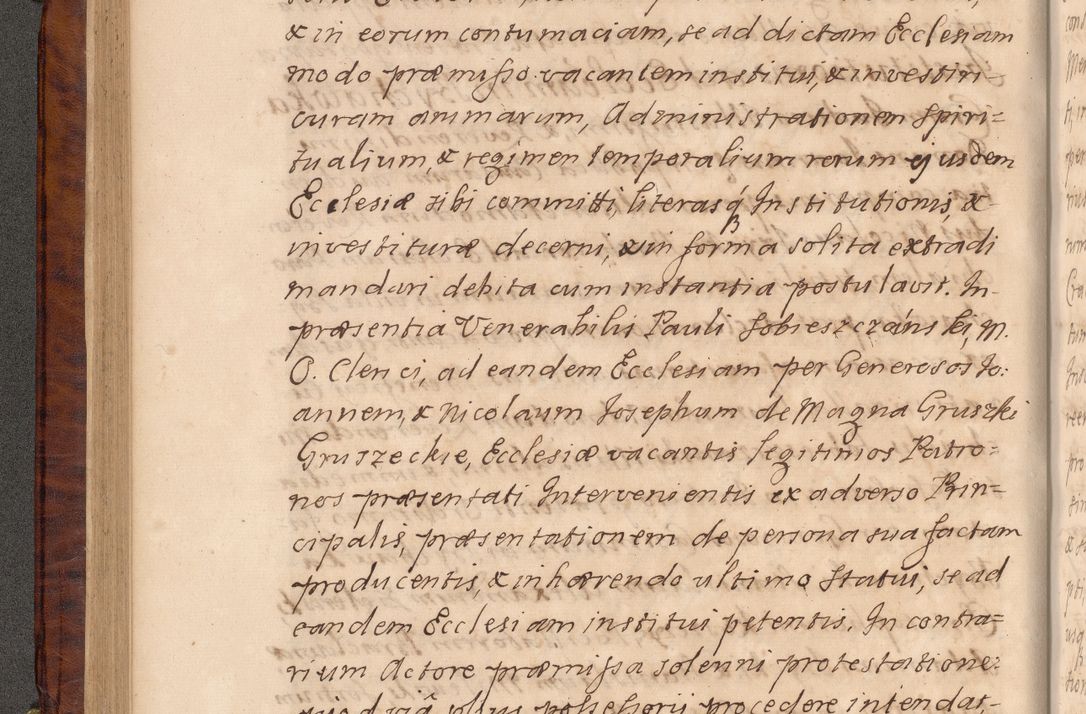 & in eorum contumaciam, se ad dictam Ecclesiam
modo præmisso vacantem institui, & investiri
curam animarum, Administrationem Spiri=
tualium, & regimen temporalium rerum ejusdem
Ecclesiæ sibi committi, literasq́ Institutionis, &
investituræ decerni, & in forma solita extradi
mandari debita cum instantia postulavit. In
præsentia Venerabilis Pauli Sobieszczánski, M.
O. Clerici, ad eandem Ecclesiam per Generosos Jo:
annem, & Nicolaum Josephum de Magna Gruszki
Gruszeckie, Ecclesiæ vacantis legitimos Patro=
nos præsentati Intervenientis ex adverso Prin=
cipalis, præsentationem de persona sua factam
producentis, & inhærendo ultimo Statui, se ad
eandem Ecclesiam institui petentis. In contra=
rium Actore præmissa solenni protestatione
quod viâ plus possessorij procedere intendat,